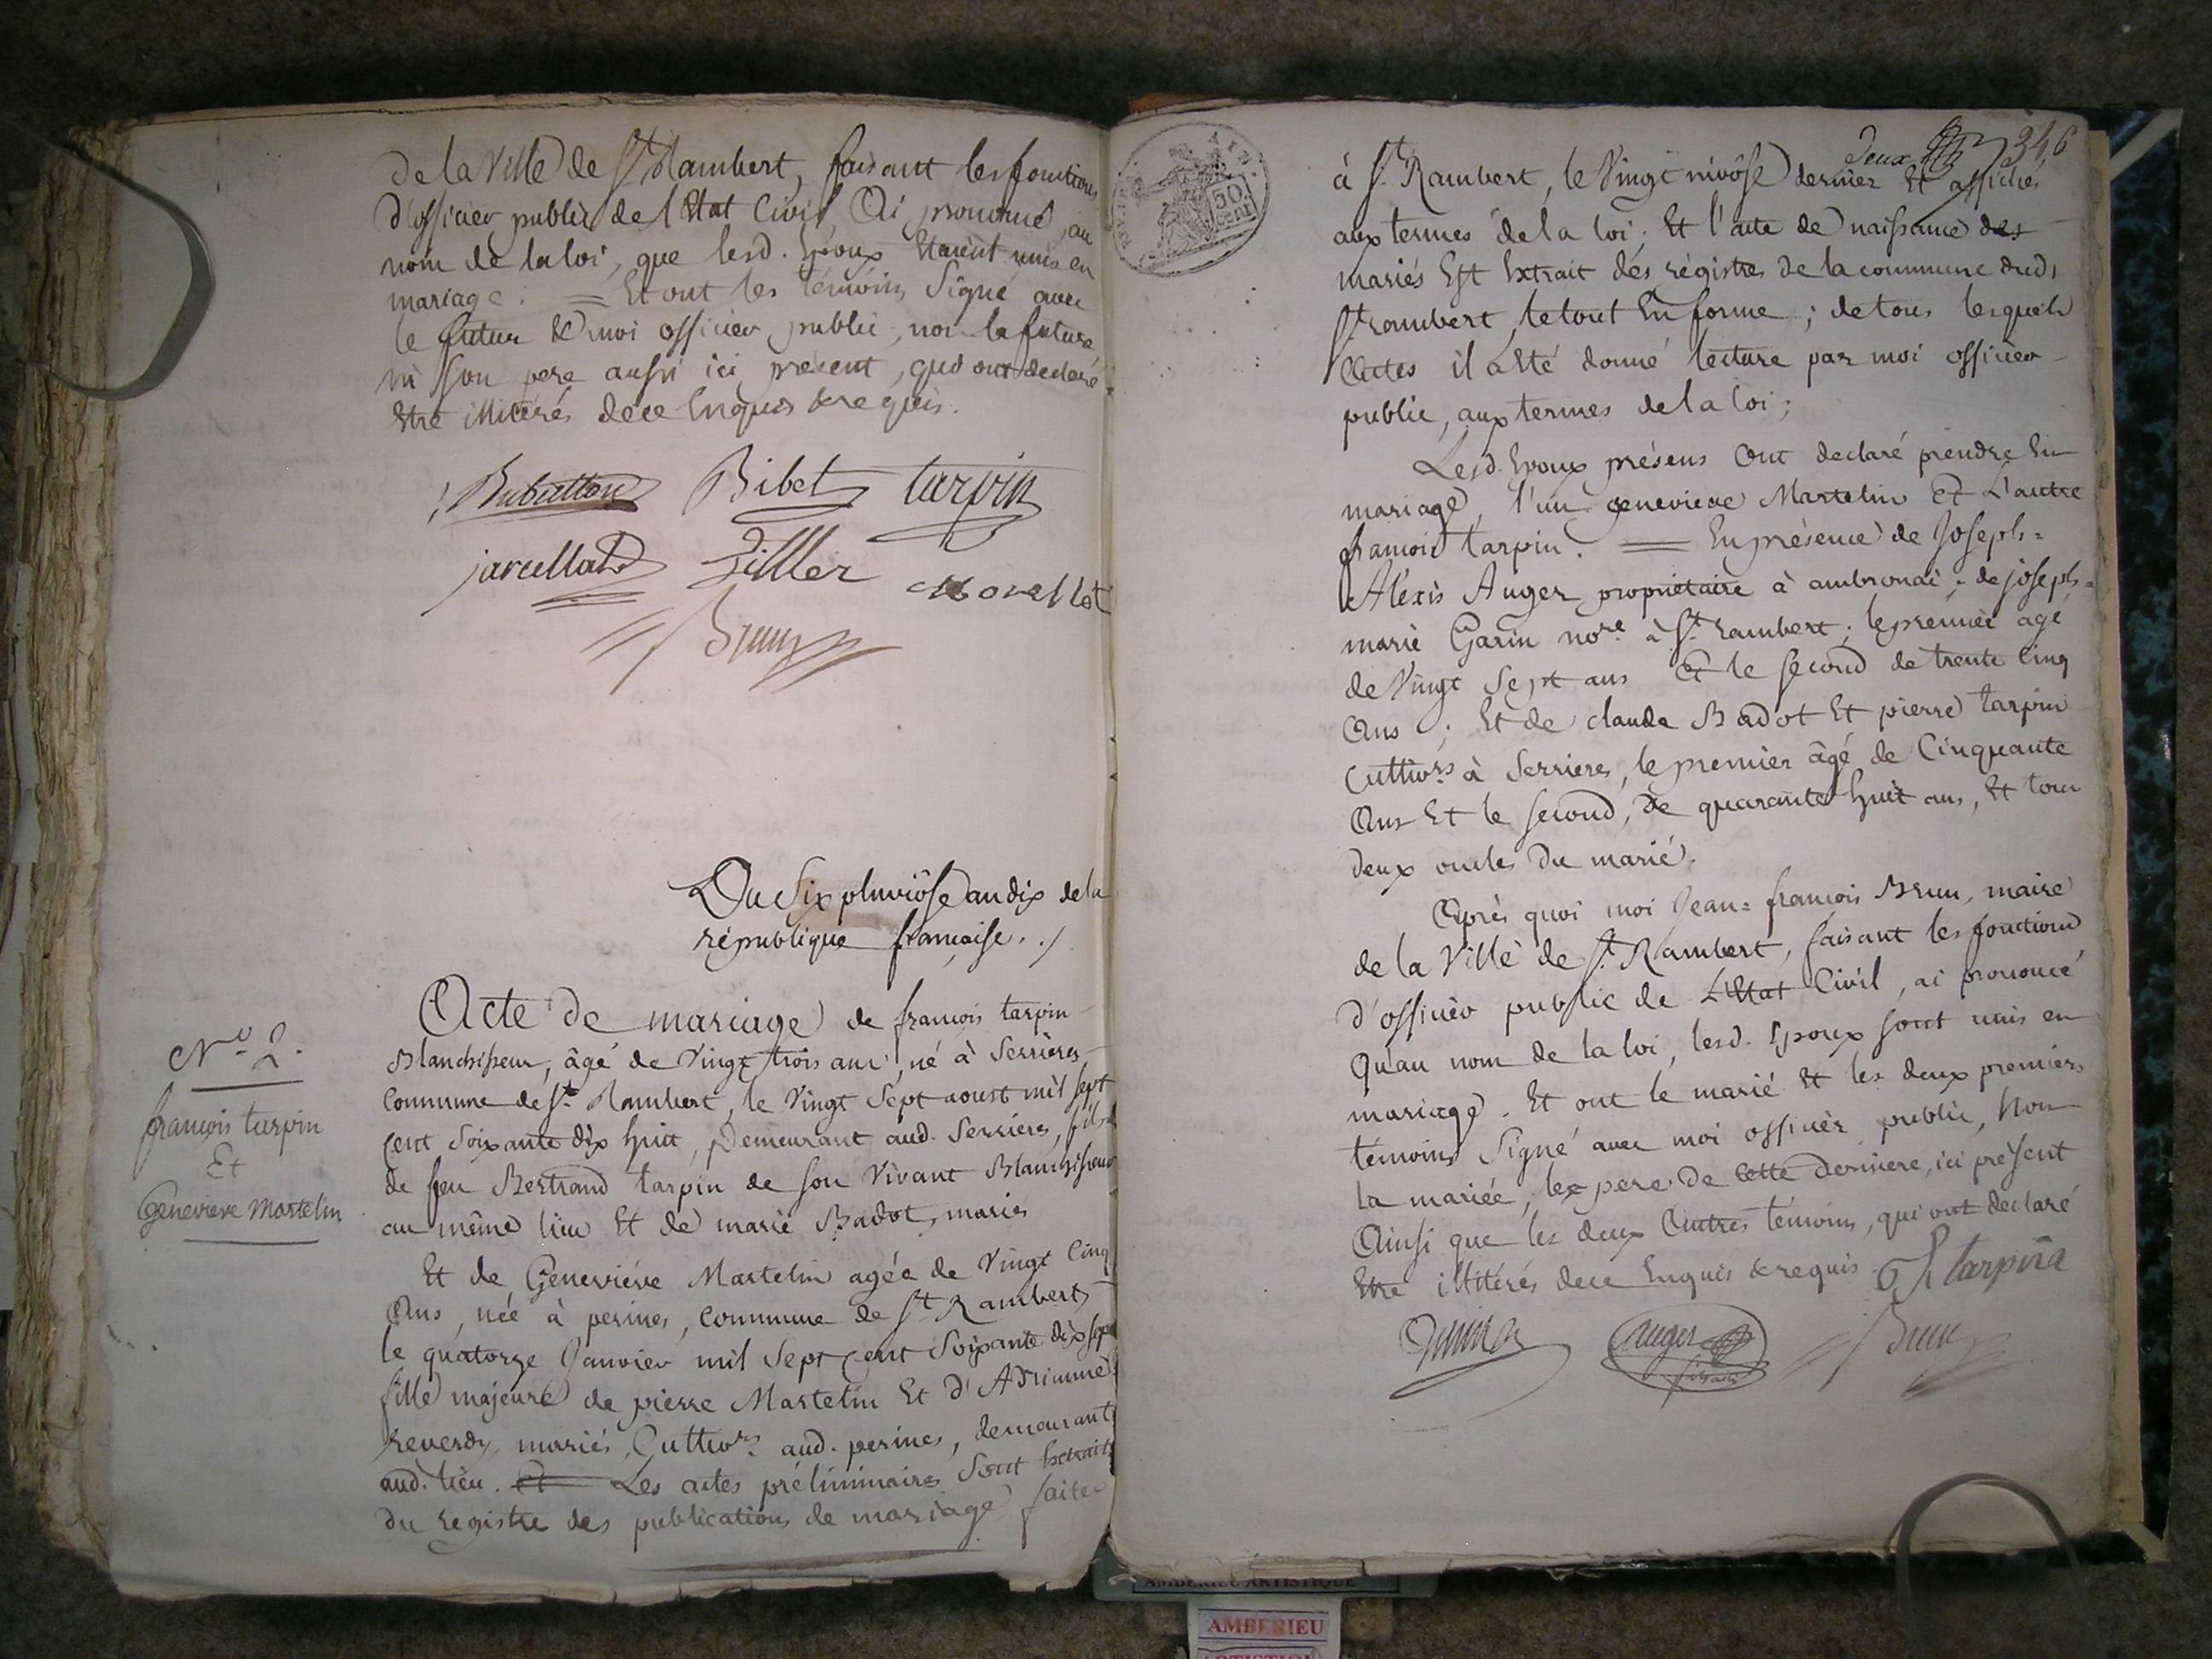 de la Ville de St. Rambert, faisant les fonctions
d'officier public de l'Etat Civil Ai prononcé, au
nom de la loi, que lesd. Epoux Etaient unis en
mariage. = Et ont les témoins Signé avec
le futur & moi officier public, non la future
ni Son pere aussi ici présent, qui ont declaré
Etre illitérés de ce Enquis & requis.
Bibet tarpin
jarcellat Tiller Morellet
Brun
Du Six pluviôse an dix de la
république française. ./
N.o 2.
françois tarpin
Et
Genevieve Martelin
Acte de mariage de françois tarpin
Blanchisseur, âgé de Vingt trois ans, né à Serrières
Commune de St. Rambert, le Vingt Sept aoust mil sept
cent Soixante dix huit, Demeurant aud. Serrières, fils
de feu Bertrand tarpin de son Vivant Blanchisseur
au même lieu Et de marie Badot, mariés
Et de Geneviéve Martelin agée de Vingt Cinq
Ans, née à perines, Commune de St. Rambert,
le quatorze Janvier mil Sept Cent Soixante dix sept
fille majeure de pierre Martelin Et d'
reverdy mariés, Cultivrs. aud. perines, demeurant
aud. lieu. Et Les actes préliminaires Sont Extraits
du registre des publications de mariage faites
deux 346
50 cent
à St. Rambert, le Vingt nivôse dernier Et affichés
aux termes de la loi; Et l'acte de naissance des
mariés Est Extrait des régistres de la commune dud.
St. rambert, le tout En forme; de tous lesquels
Actes il a Eté donné lecture par moi officier
public, aux termes de la loi;
Lesd. Epoux présens Ont declaré prendre En
mariage, l'un genevieve Martelin Et L'autre
françois tarpin. = En présence de Joseph=
Alexis Auger propriétaire à ambronai; de joseph=
marie Garin nore. à St. rambert; le premier agé
de Vingt Sept ans Et le Second de trente Cinq
Ans; Et de claude Badot Et pierre tarpin
Cultivrs. à Serrieres, le premier âgé de Cinquante
Ans Et le Second, de quarante huit ans, Et tous
deux oncles du marié.
Après quoi moi Jean=françois Brun, maire
de la Ville de St. Rambert, faisant les fonctions
d'officier public de L'Etat Civil, ai prononcé
Qu'au nom de la loi, lesd. Epoux sont unis en
mariage. Et ont le marié Et les deux premiers
temoins Signé avec moi officier public, Non
la mariée, le pere de cette derniere, ici présent
Ainsi que les deux Autres témoins, qui ont declaré
Etre illitérés de ce Enquis & requis. tarpin
auger Brun
AMBERIEU ARTISTIQUE
AMBERIEU
ARTISTIQUE